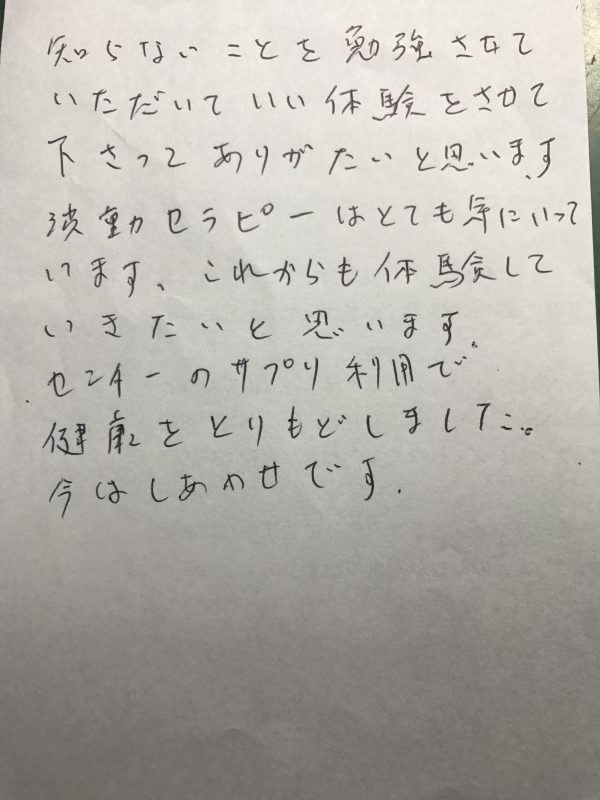 知らないことを勉強させて
いただいていい体験をさせて
下さってありがたいと思います
波動セラピーはとても気にいって
います、これからも体験して
いきたいと思います。
センターのサプリ利用で
健康をとりもどしました。
今はしあわせです.